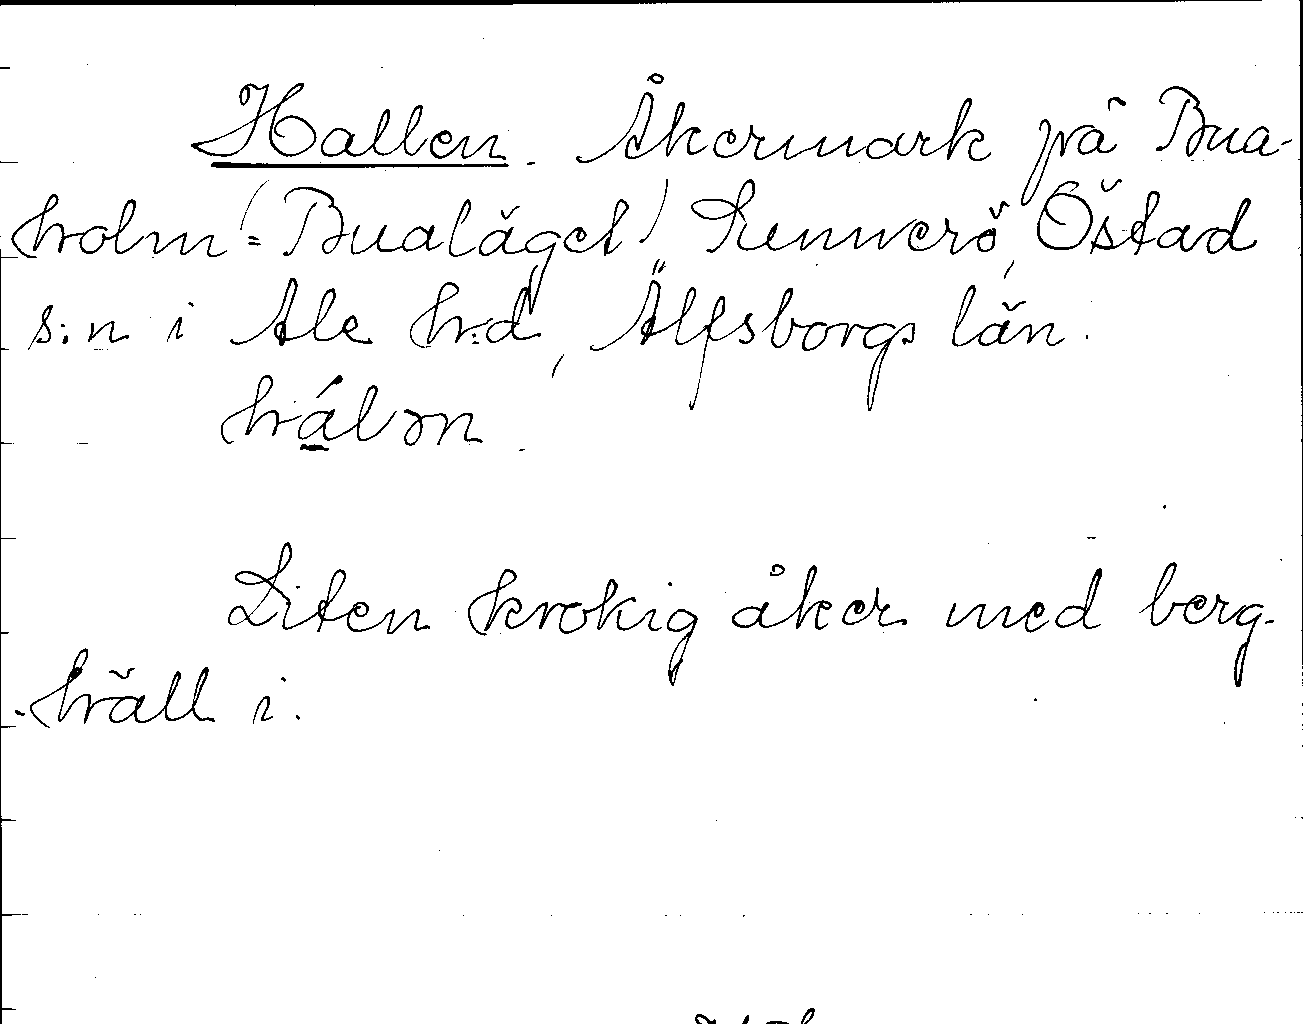 Hallen. Åkermark på Bua-
holm (= Bualäget) Rennerö, Östad
s:n i Ale h:d, Älfsborgs län.
hálɔn.
Liten krokig åker med berg-
häll i.